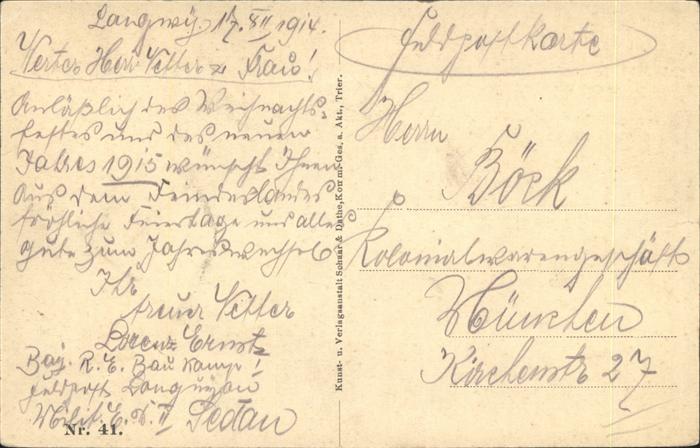 Longwÿ. 17. XII 1914.
Werter Herr Vetter u. Frau!
Anläßlich des Weihnachts-
festes und des neuen
Jahres 1915 wünscht Ihnen
aus dem Feindeslandes
fröhliche Feiertage und alles
gute zum Jahreswechsel
Ihr
treuer Vetter
Lorenz Ernst
Bay. R. E. Bau Komp!
Feldpost Longuyon
Milit. E. D. II Sedan
Nr. 41.
Kunst- u. Verlagsanstalt Schaar & Dathe, Komm.-Ges. a. Akt., Trier.
Feldpostkarte
Herrn
Böck
Kolonialwarengeschäft
München
Kirchenstr 27